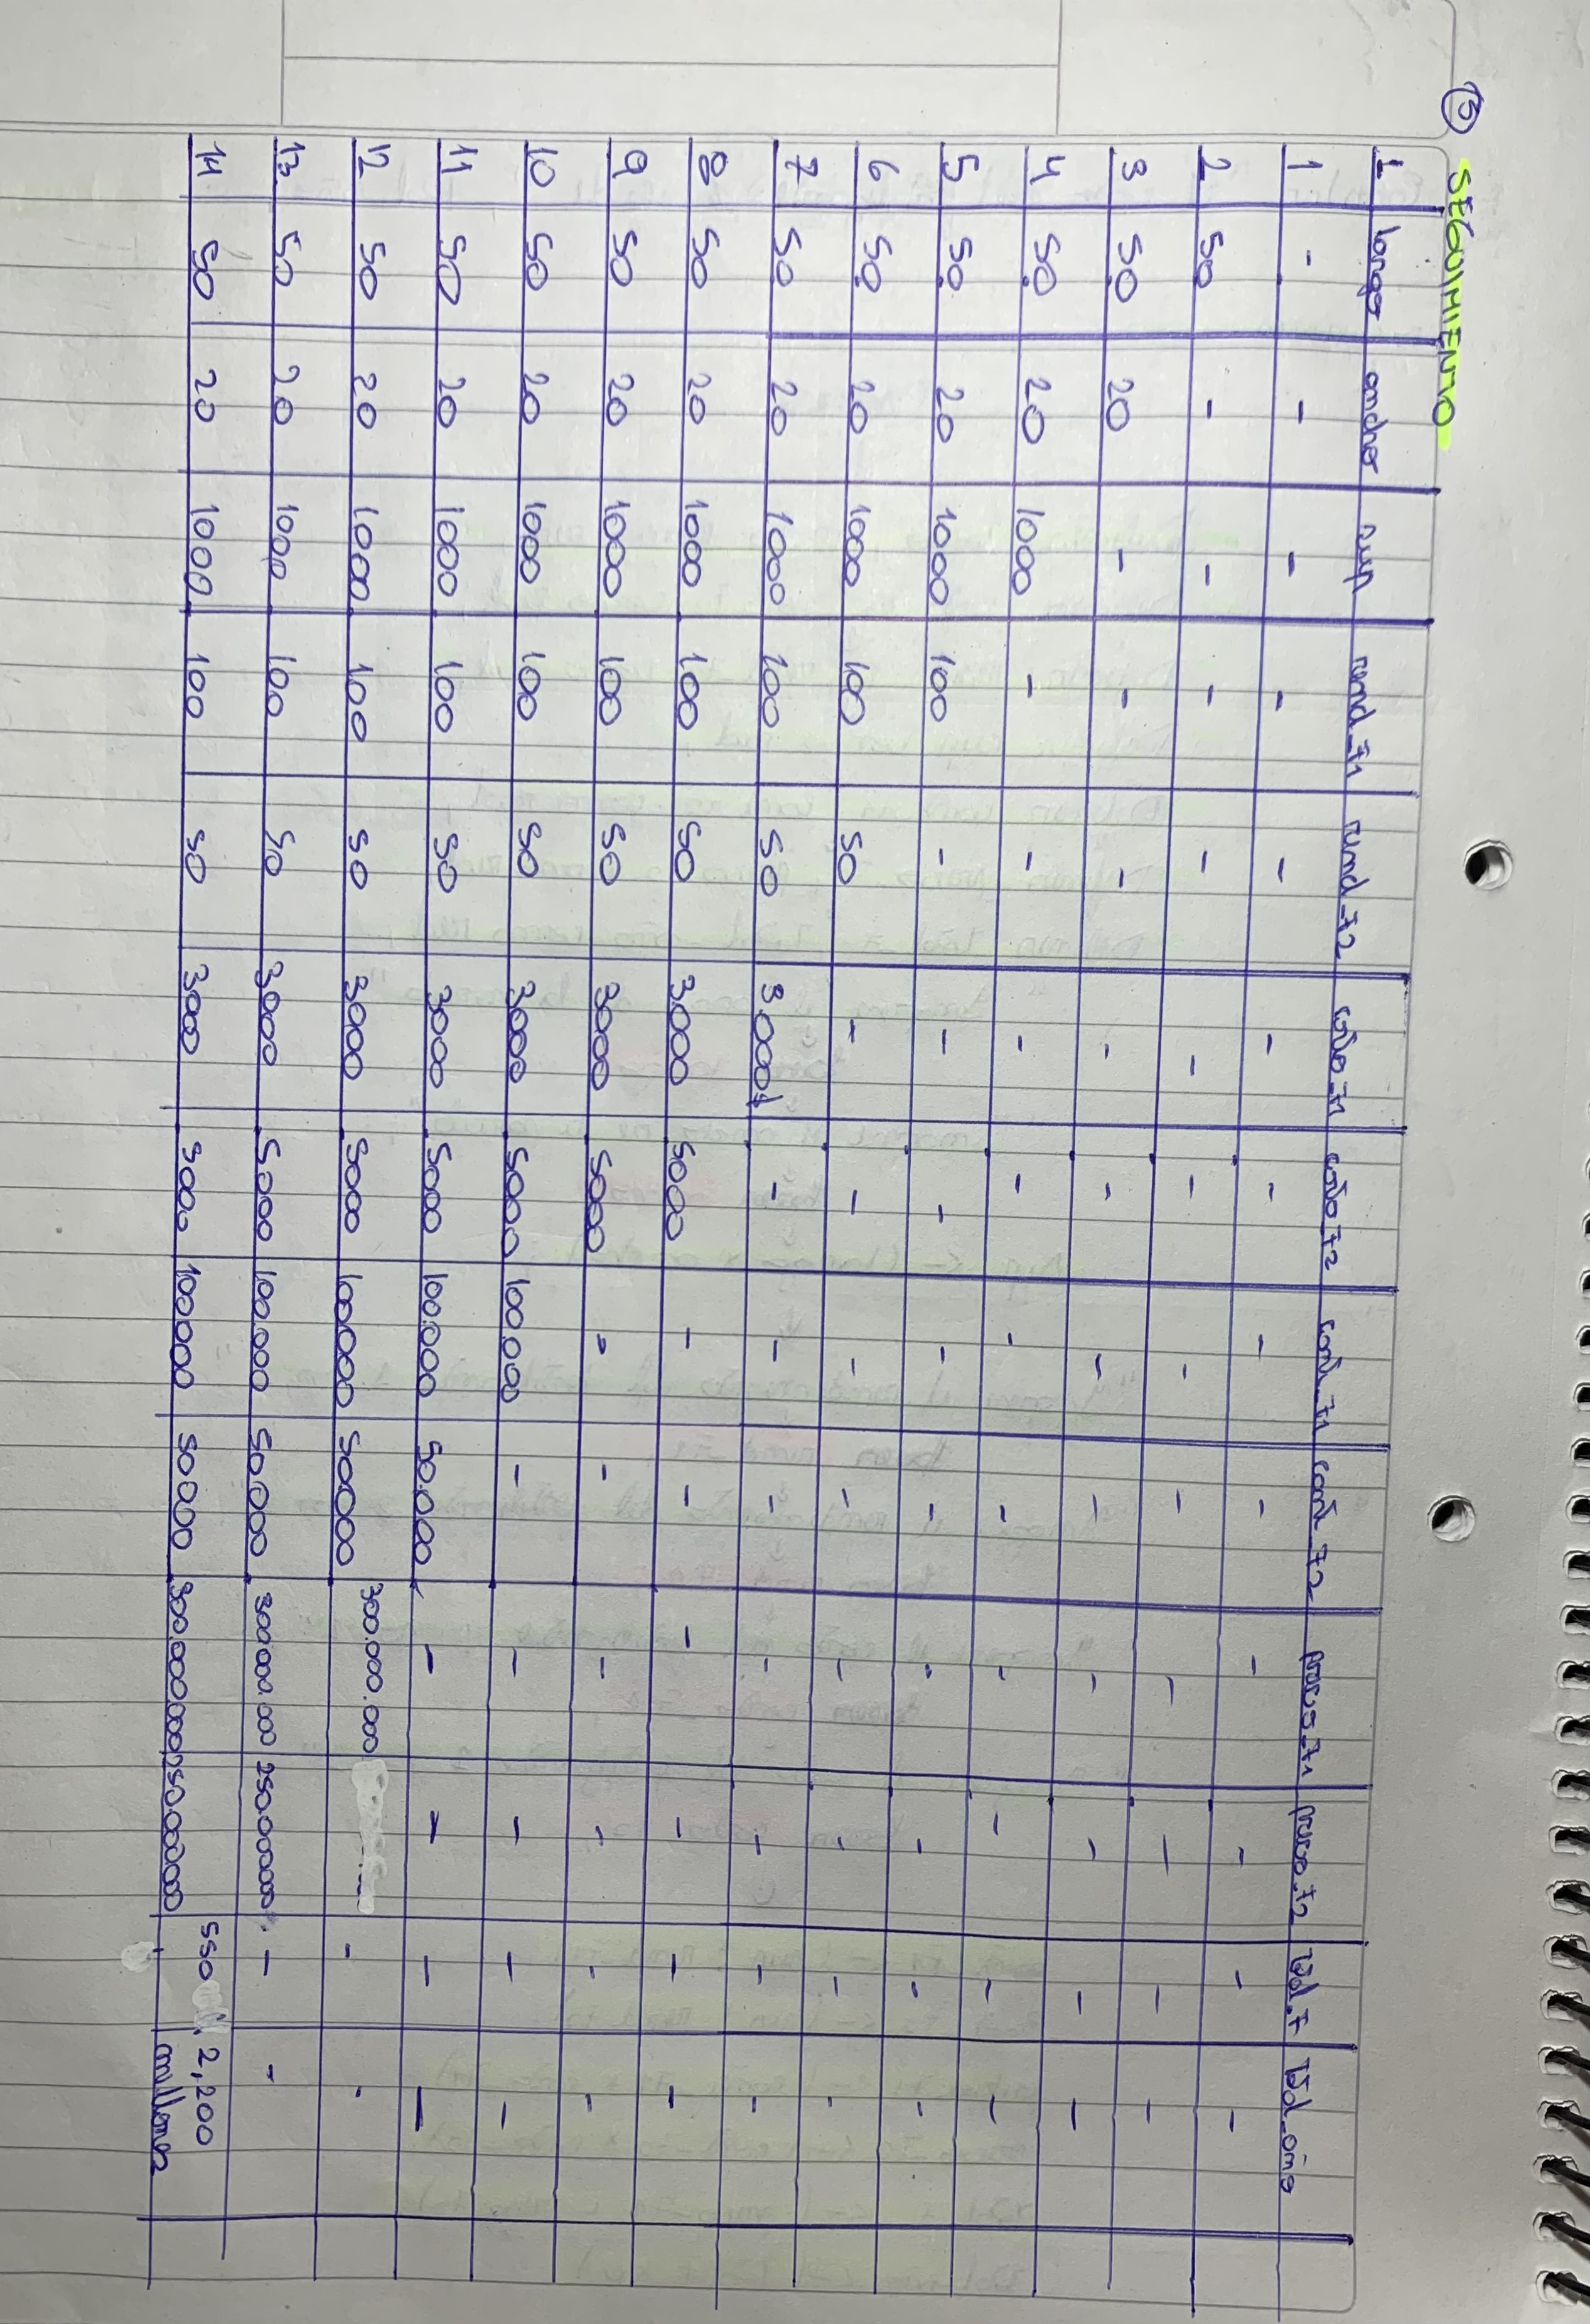 ③ SEGUIMIENTO
L largo ancho sup rend_F1 rend_F2 costo_F1 costo_F2 cant_F1 cant_F2 F1 F2 Total_F Total_año
1 - - - - - - - - - - - - -
2 50 - - - - - - - - - - - -
3 50 20 - - - - - - - - - - -
4 50 20 1000 - - - - - - - - - -
5 50 20 1000 100 - - - - - - - - -
6 50 20 1000 100 50 - - - - - - - -
7 50 20 1000 100 50 3.000$ - - - - - - -
8 50 20 1000 100 50 3.000 5000 - - - - - -
9 50 20 1000 100 50 3000 5000 - - - - - -
10 50 20 1000 100 50 3000 5000 100.000 - - - - -
11 50 20 1000 100 50 3000 5000 100.000 50.000 - - - -
12 50 20 1000 100 50 3000 5000 100000 50000 300.000.000 - -
13 50 20 1000 100 50 3000 5000 100.000 50.000 300.000.00 250.000000 - -
14 50 20 1000 100 50 3000 5000 100000 50000 300.000000 250000000 550 2,200 millones